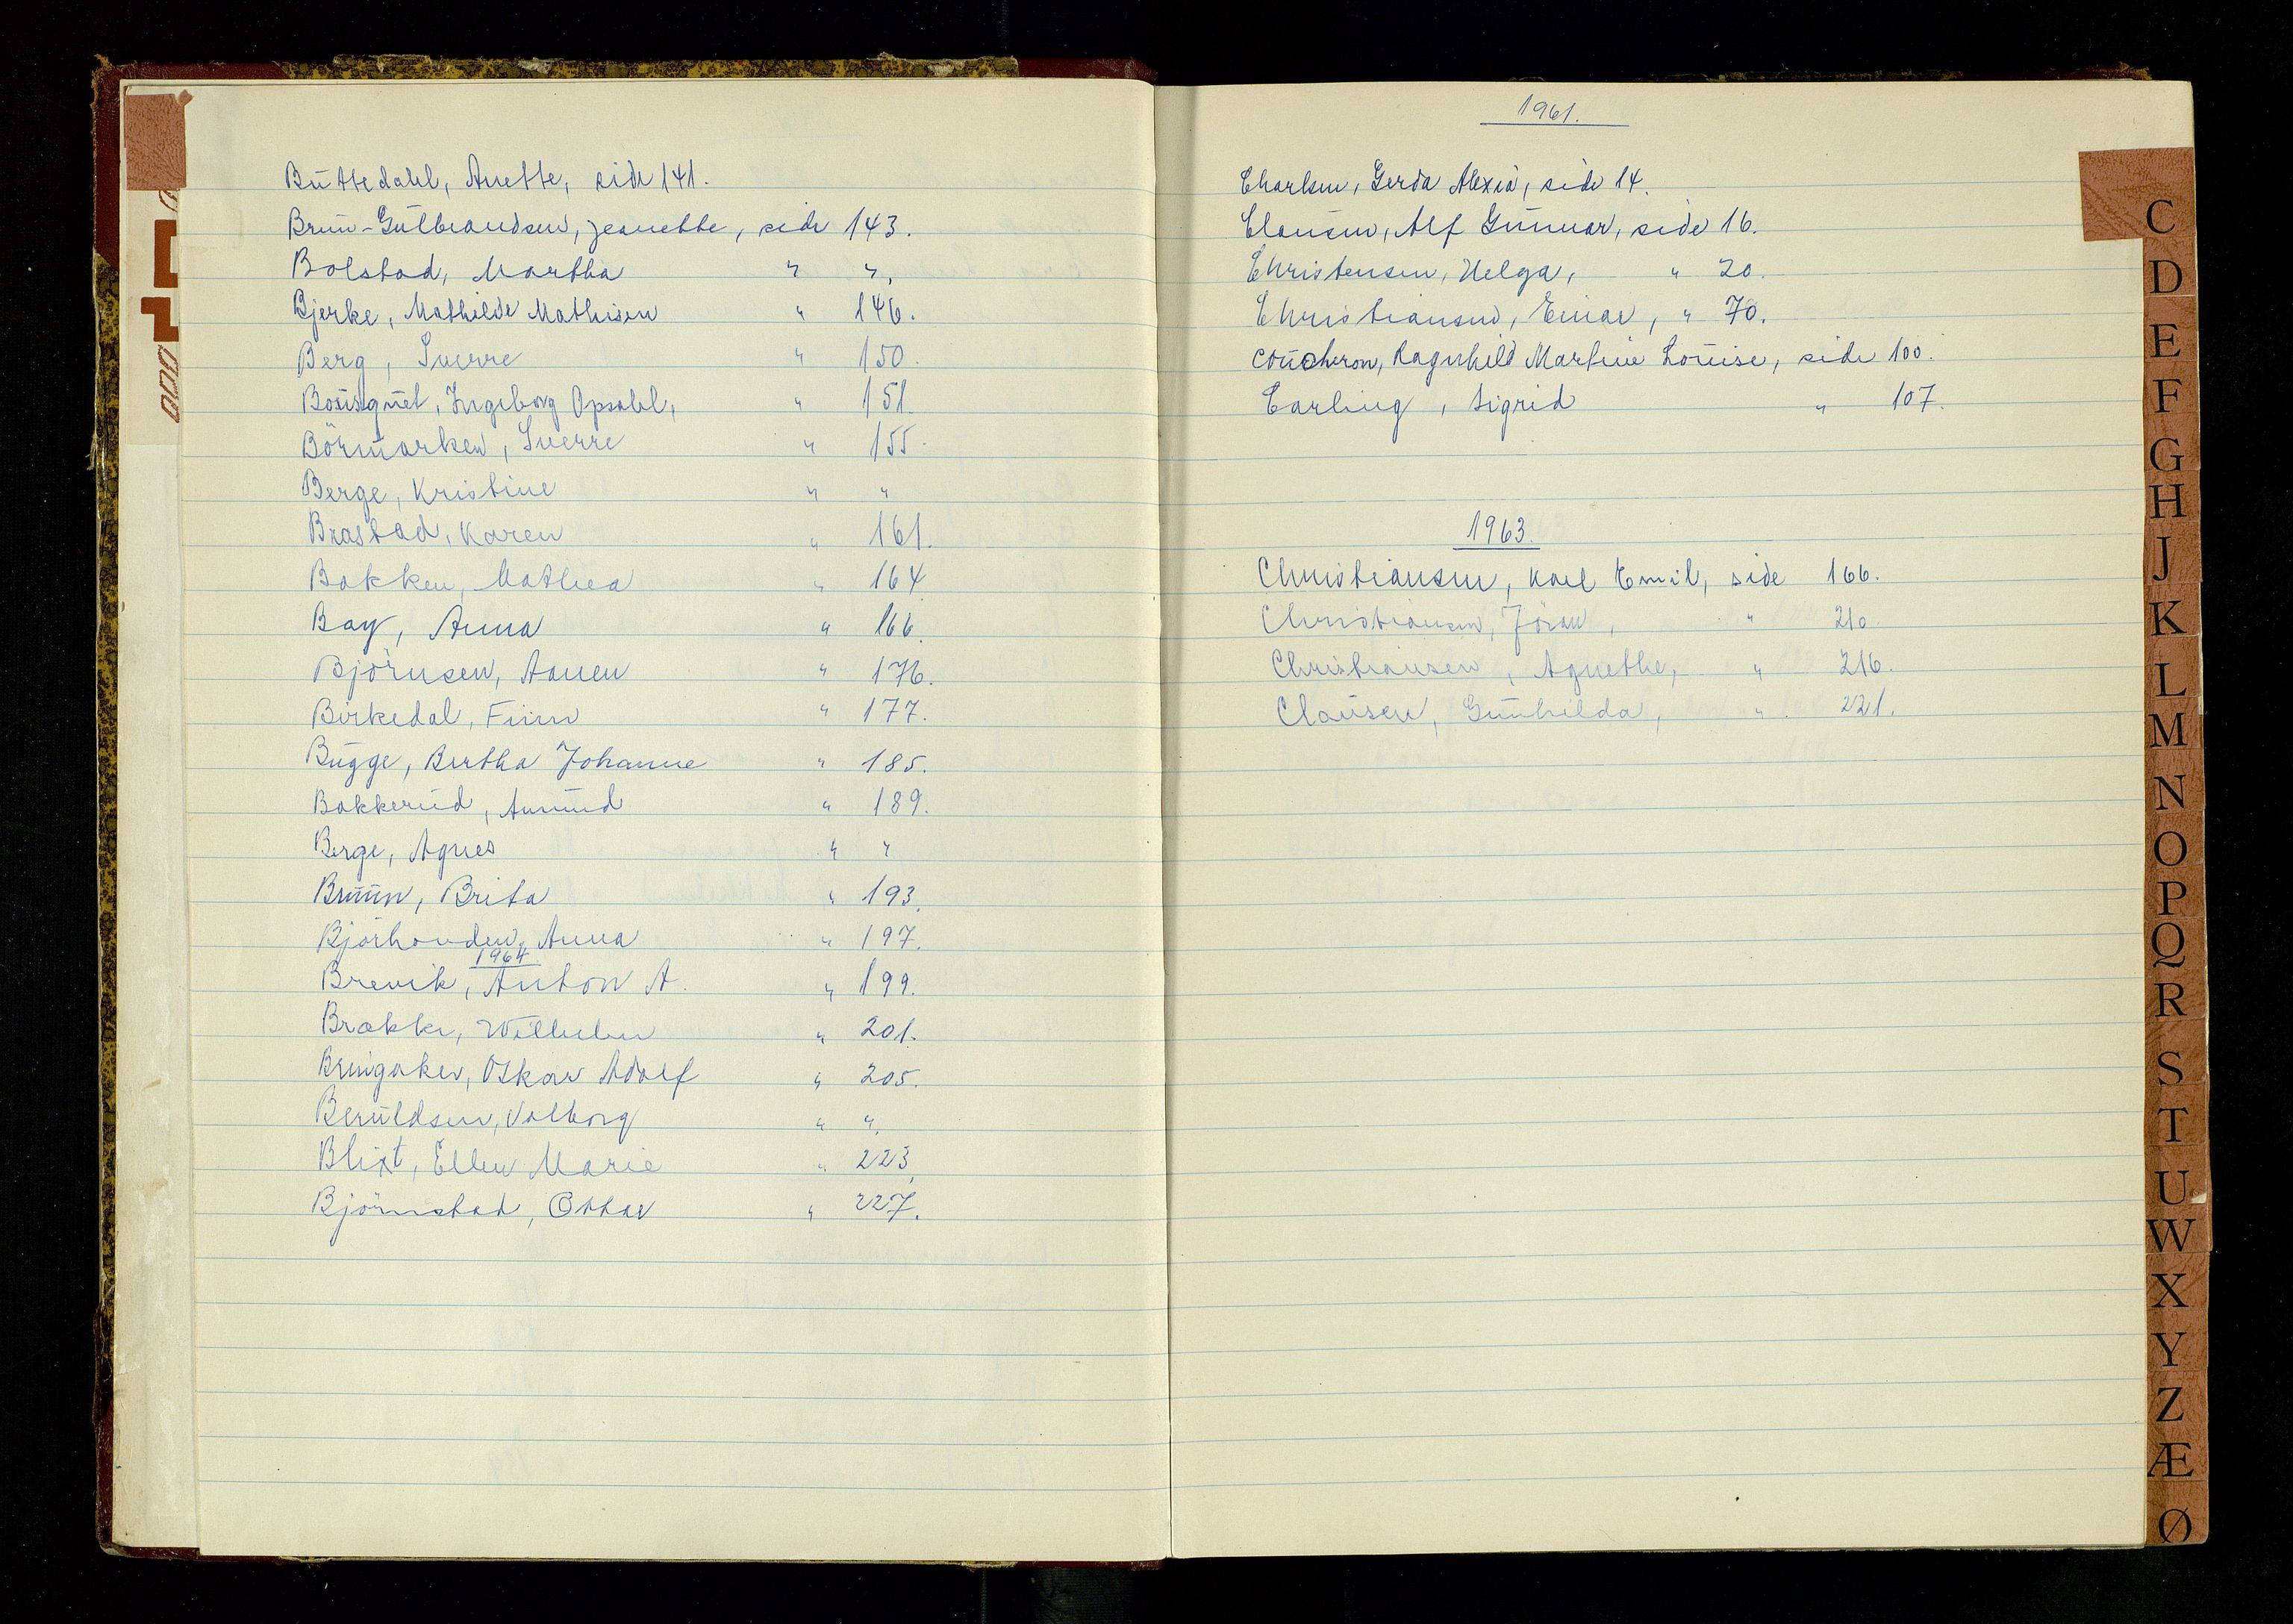 Buttedahl, Anette, side 141.
Brun-Gulbrandsen, Jeanette, side 143.
Bolstad, Martha " ".
Bjerke, Mathilde Mathisen " 146.
Berg, Sverre " 150.
Bousquet, Ingeborg Opsahl, " 151.
Börmarken, Sverre " 155.
Berge, Kristine " "
Brastad, Karen " 161.
Bakken, Mathea " 164
Bay, Anna " 166.
Björnsen, Aanen " 176.
Birkedal, Finn " 177.
Bugge, Bertha Johanne " 185.
Bakkerud, Amund " 189.
Berge, Agnes " "
Bruun, Brita " 193.
Björhovden, Anna " 197.
1964
Brevik, Anton A. " 199.
Brække, Wilhelm " 201.
Bringaker, Oskar Adolf " 205.
Beruldsen, Valborg " ".
Blixt, Ellen Marie " 223.
Björnstad, Ottar " 227.
1961.
Charlsen, Gerda Alexia, side 14.
Clausen, Alf Gunnar, side 16.
Christensen, Helga, " 20.
Christiansen, Einar, " 70.
Coucheron, Ragnhild Martine Louise, side 100.
Carling, Sigrid " 107.
1963.
Christiansen, Karl Emil, side 166.
Christiansen, Jöran, " 210.
Christiansen, Agnethe, " 216.
Clausen, Gunhilda, " 221.
C
D
E
F
G
H
J
K
L
M
N
O
P
Q
R
S
T
U
W
X
Y
Z
Æ
Ø